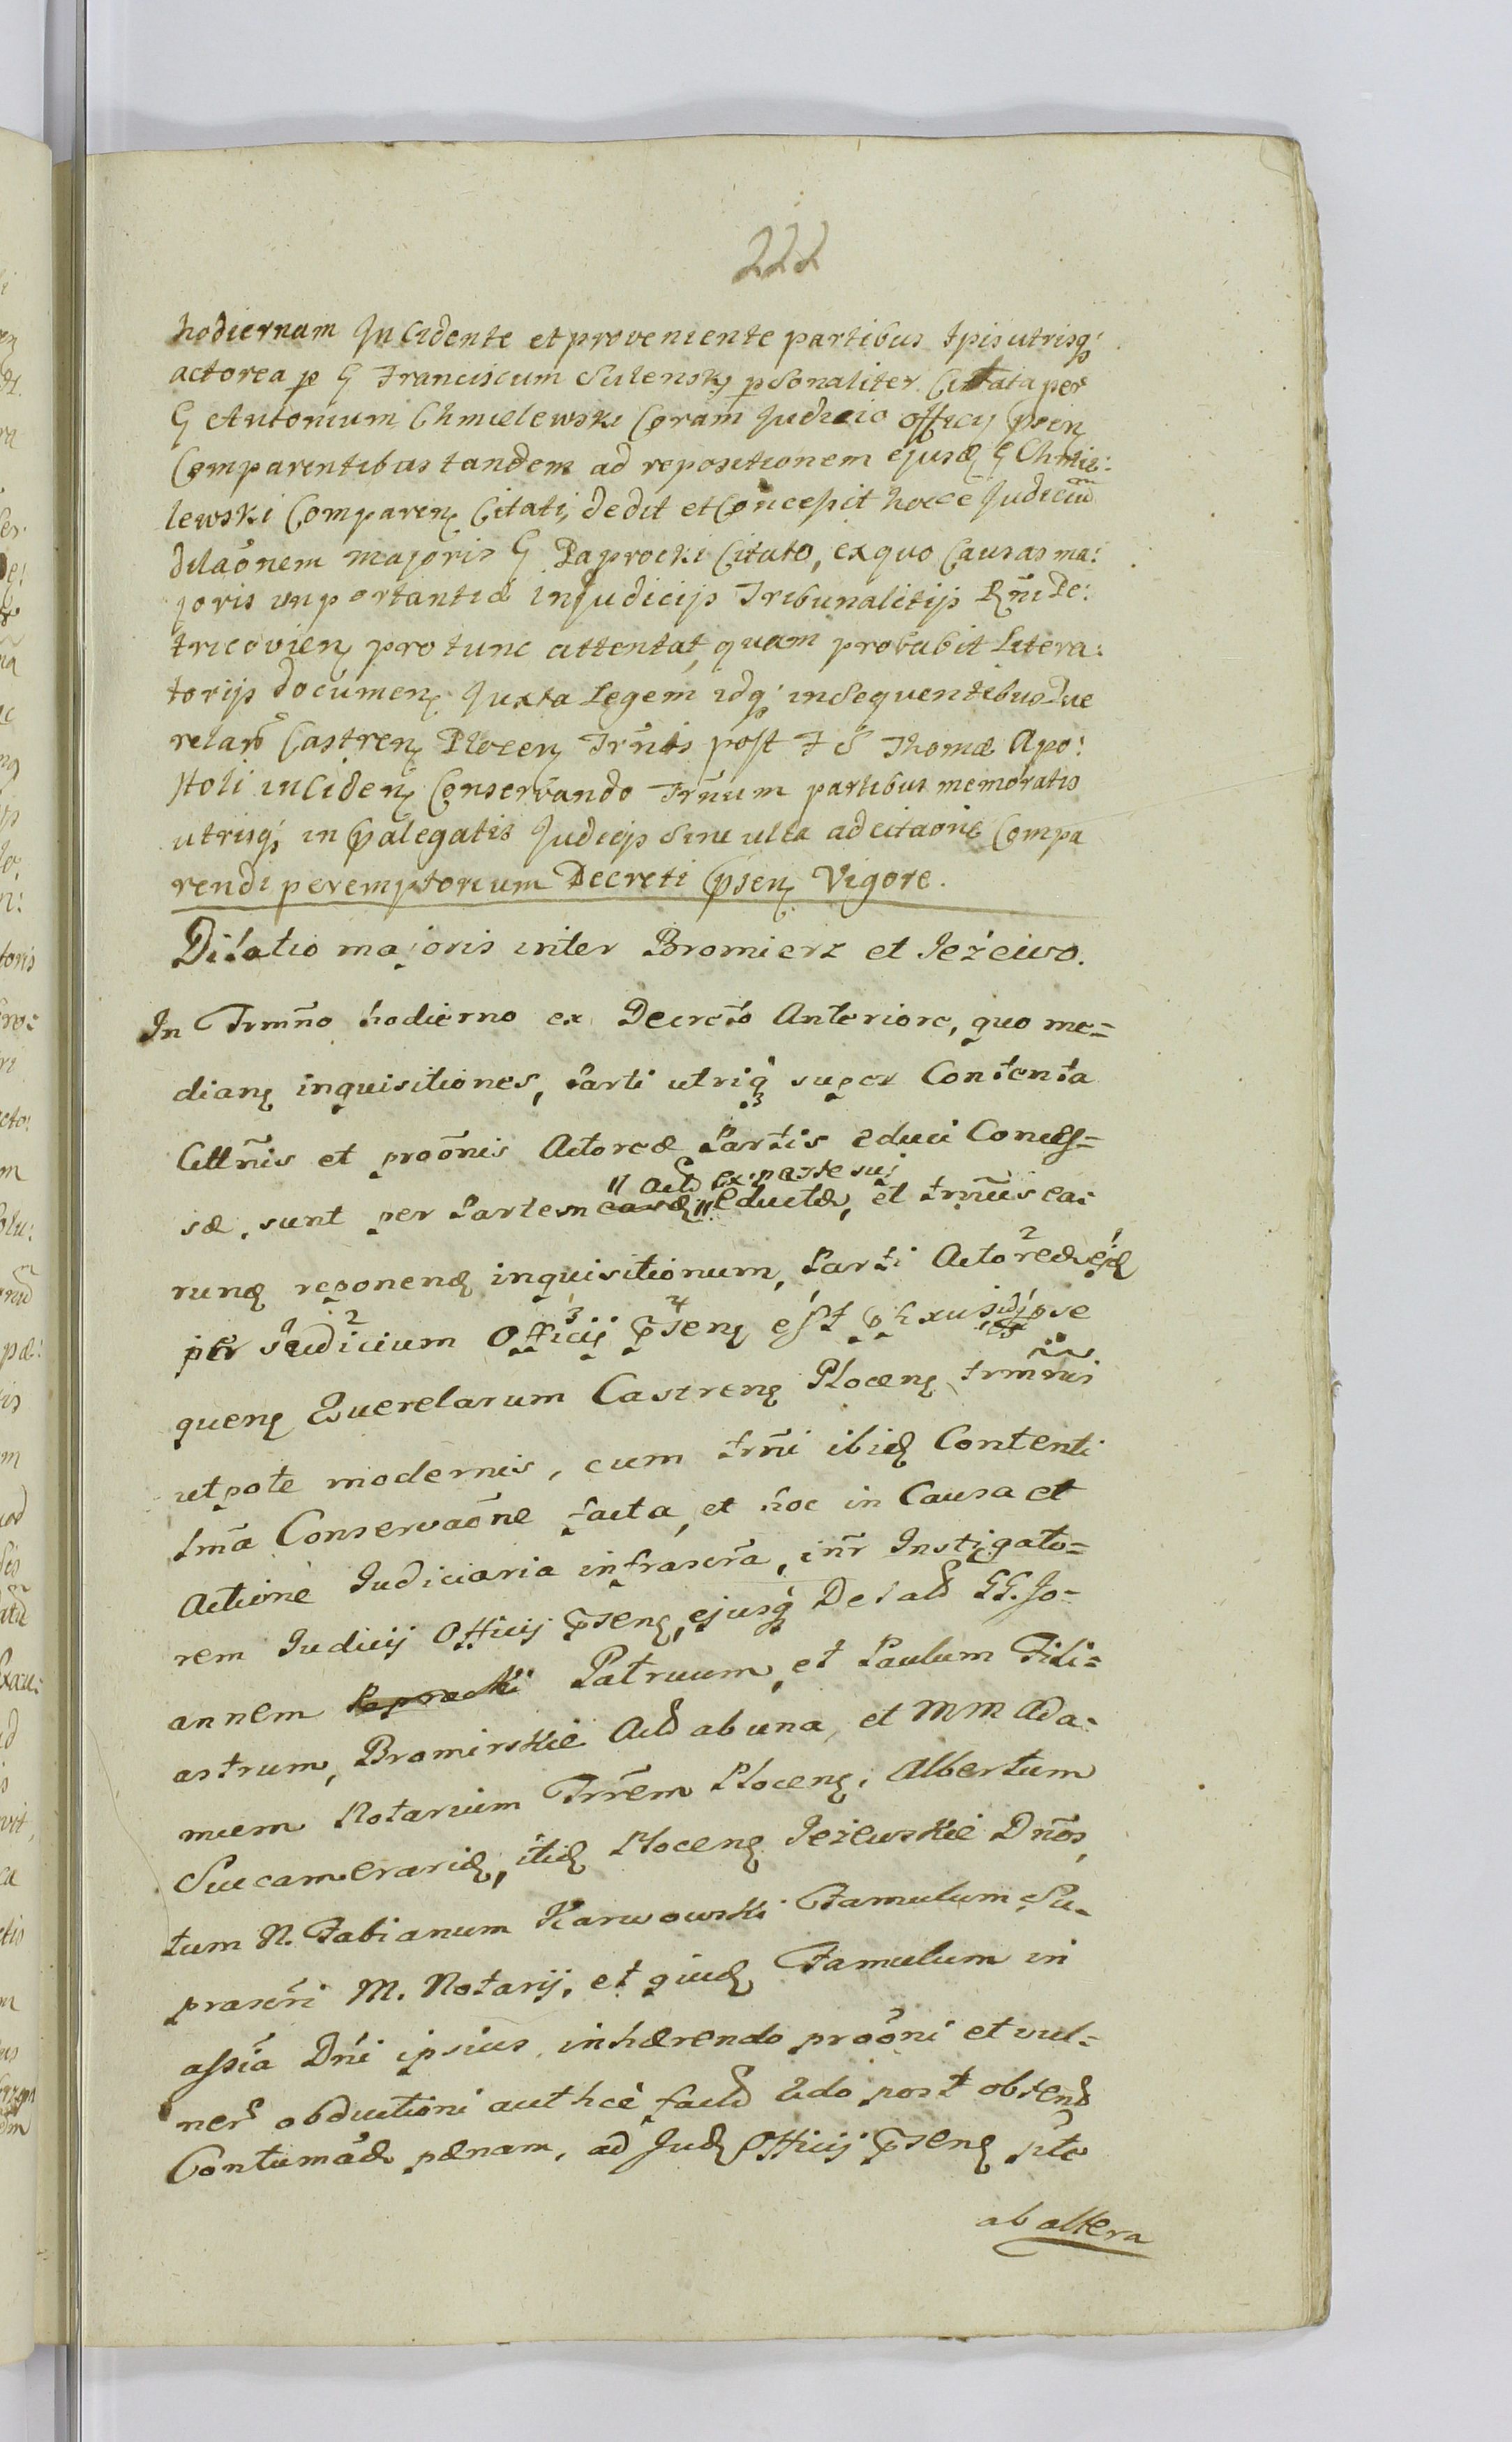 222
hodiernam Incidente et proveniente partibus ipis utrisq;
actorea p G Franciscum Sulensky psonaliter Citata per
G Antonium Chmielewski Coram Judicio Officy psen
Comparentibus tandem ad repositionem ejusd G Chmie:
lewski Comparen Citati, dedit et Concessit hocce Judicium
dilaonem majoris G Paprocki Citato, ex quo Causas ma:
joris importantiæ in Judicijs Tribunalitijs Rni Pe:
tricovien pro tunc attentat, quam probabit Litera:
torijs documen Juxta Legem idq; in Sequentibus Que
relarũ Castren Plocen Trnis post F S Thomæ Apo:
stoli inciden Conservando Trnum partibus memoratis
utrisq; in palegatis Judicijs Sine ulla adcitaone Compa
rendi peremptorium Decreti psen Vigore.
Dilatio majoris inter Bromierz et Jeżewo.
In Trmno hodierno ex Decreto Anteriore, quo me=
dian inquisitiones, Parti utriq; super Contenta
Citnis et proonis Actoreæ Partis educi Conces=
sæ, sunt per Partem easd " Act ex parte sui " eductæ, et trmus ea:
rund reponend inquisitionum, Parti Actoreæ ejd
per Judicium Officij psen est pfixus, id ipse
quen Querelarum Castren Plocen trmnis
utpote modernis, cum trni ibid Contenti
tma Conservaone facta, et hoc in Causa et
Actione Judiciaria infrascra, inr Instigato=
rem Judicij Officij psen, ejusq; Delat GG. Jo=
annem Paprocki Patruum, et Paulum Fili=
astrum, Bromirskie Act ab una, et MM Ada:
mum Notarium Trrem Plocen, Albertum
Succamerarid, itid Plocen Jeżewskie Dnos,
tum N. Fabianum Karwowski Famulum Su=
prascri M. Notarij, et quid Famulum in
assia Dni ipsius, inhærendo proõni et vul=
ner obductioni authce fact Udo post obten
Contumaæ pænam, ad Jud Officij psen pte
ab altera